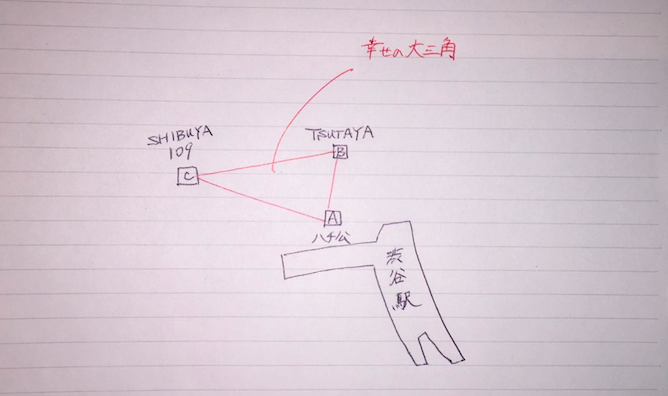 幸せの大三角
SHIBUYA
109
TSUTAYA
C
B
A
ハチ公
渋谷駅